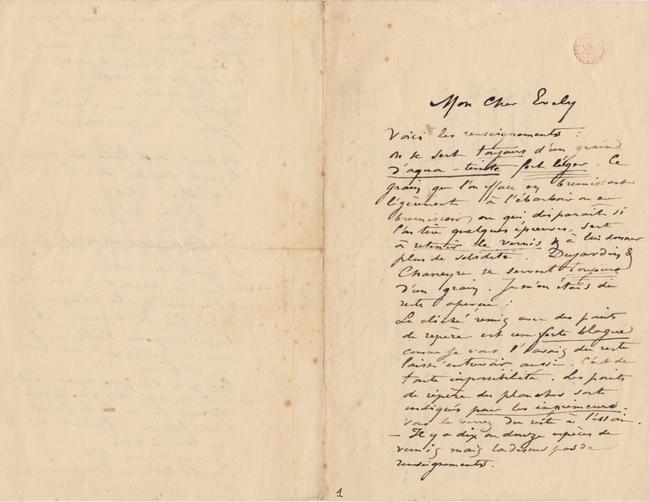 Mon cher Evely
Voici les renseignements :
on se sert toujours d'un grain
d'aqua-teinte fort léger. Ce
grain que l'on efface en brunissant
légèrement à l'ébarboir ou au
brunissoir, ou qui disparaît si
l'on tire quelques épreuves, sert
à retenir le vernis & à lui donner
plus de solidité. Dujardin &
Charreyre se servent toujours
d'un grain. Je m'en étais du
reste aperçu :
Le cliché remis avec des points
de repère est une forte blague
comme je vous l'avais du reste
laissé entrevoir aussi. C'est de
toute impossibilité. Les points
de repère des planches sont
indiqués pour les imprimeurs.
Vous le verrez du reste à l'essai.
— Il y a dix ou douze espèces de
vernis mais là-dessus pas de
renseignements.
1